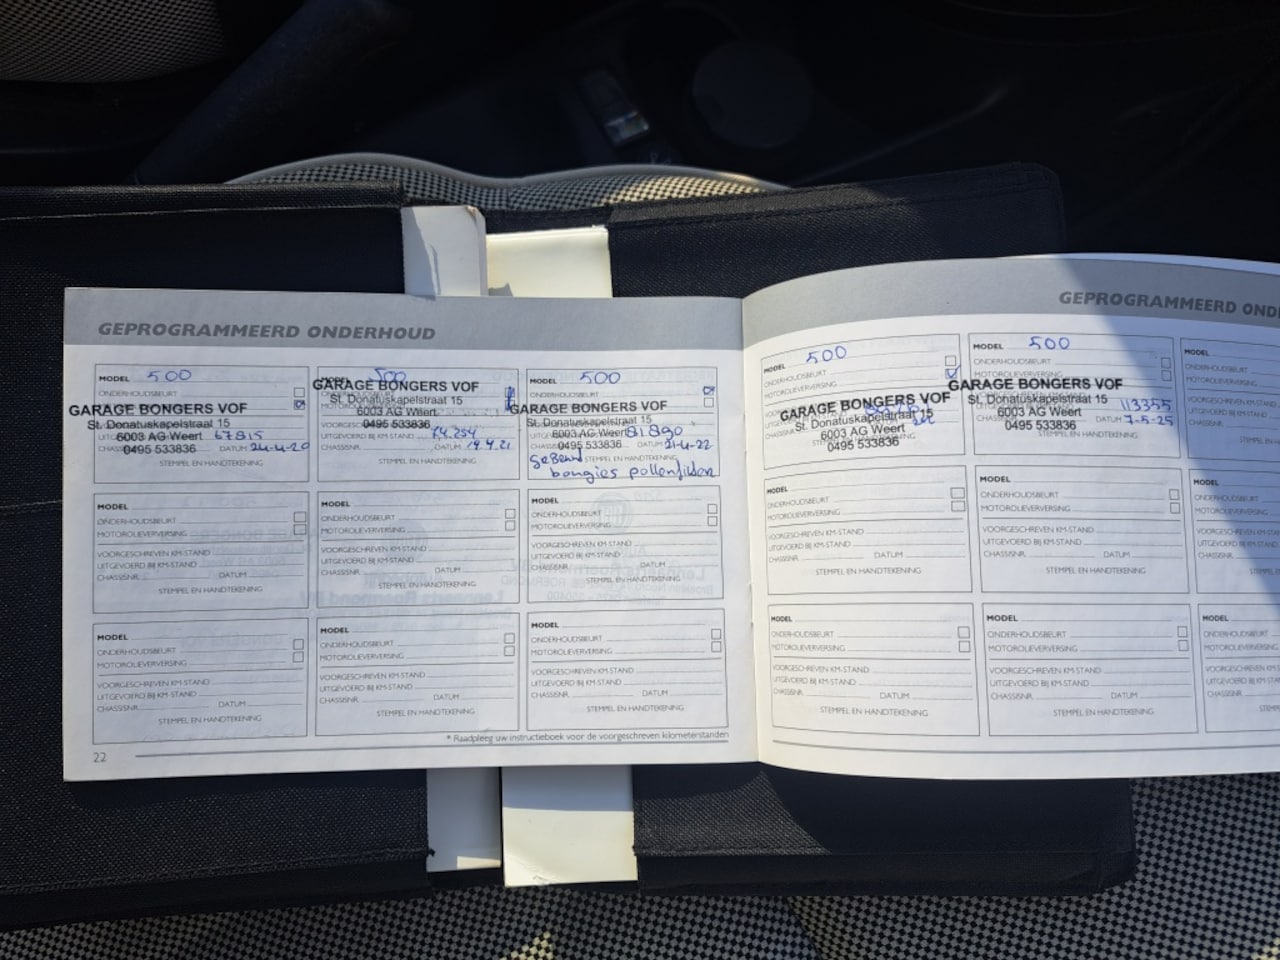 GEPROGRAMMEERD ONDERHOUD
MODEL 500
ONDERHOUDSBEURT
GARAGE BONGERS VOF
St. Donatuskapelstraat 15
6003 AG Weert 67815
0495 533836 DATUM 24-4-20
STEMPEL EN HANDTEKENING
500
GARAGE BONGERS VOF
St. Donatuskapelstraat 15
6003 AG Weert
VOORGESCHREVEN KM-STAND
0495 533836
UITGEVOERD BIJ KM-STAND 74.254
CHASSISNR. DATUM
STEMPEL EN HANDTEKENING
MODEL 500
ONDERHOUDSBEURT
GARAGE BONGERS VOF
St. Donatuskapelstraat 15
6003 AG Weert 81890
0495 533836 DATUM 21-4-22
STEMPEL EN HANDTEKENING
bougies pollenfilter
MODEL
ONDERHOUDSBEURT
MOTOROLIEVERVERSING
VOORGESCHREVEN KM-STAND
UITGEVOERD BIJ KM-STAND
CHASSISNR. DATUM
STEMPEL EN HANDTEKENING
MODEL
ONDERHOUDSBEURT
MOTOROLIEVERVERSING
VOORGESCHREVEN KM-STAND
UITGEVOERD BIJ KM-STAND
CHASSISNR. DATUM
STEMPEL EN HANDTEKENING
MODEL
ONDERHOUDSBEURT
MOTOROLIEVERVERSING
VOORGESCHREVEN KM-STAND
UITGEVOERD BIJ KM-STAND
CHASSISNR. DATUM
STEMPEL EN HANDTEKENING
MODEL
ONDERHOUDSBEURT
MOTOROLIEVERVERSING
VOORGESCHREVEN KM-STAND
UITGEVOERD BIJ KM-STAND
CHASSISNR. DATUM
STEMPEL EN HANDTEKENING
MODEL
ONDERHOUDSBEURT
MOTOROLIEVERVERSING
VOORGESCHREVEN KM-STAND
UITGEVOERD BIJ KM-STAND
CHASSISNR. DATUM
STEMPEL EN HANDTEKENING
MODEL
ONDERHOUDSBEURT
MOTOROLIEVERVERSING
VOORGESCHREVEN KM-STAND
UITGEVOERD BIJ KM-STAND
CHASSISNR. DATUM
STEMPEL EN HANDTEKENING
* Raadpleeg uw instructieboek voor de voorgeschreven kilometerstanden
22
GEPROGRAMMEERD OND
MODEL 500
ONDERHOUDSBEURT
MOTOROLIEVERVERSING
GARAGE BONGERS VOF
St. Donatuskapelstraat 15
6003 AG Weert
0495 533836
MODEL 500
ONDERHOUDSBEURT
MOTOROLIEVERVERSING
GARAGE BONGERS VOF
St. Donatuskapelstraat 15
6003 AG Weert 113355
0495 533836 DATUM 7-5-25
STEMPEL EN HANDTEKENING
MODEL
MODEL
ONDERHOUDSBEURT
MOTOROLIEVERVERSING
VOORGESCHREVEN KM-STAND
UITGEVOERD BIJ KM-STAND
CHASSISNR. DATUM
STEMPEL EN HANDTEKENING
MODEL
ONDERHOUDSBEURT
MOTOROLIEVERVERSING
VOORGESCHREVEN KM-STAND
UITGEVOERD BIJ KM-STAND
CHASSISNR. DATUM
STEMPEL EN HANDTEKENING
MODEL
MODEL
ONDERHOUDSBEURT
MOTOROLIEVERVERSING
VOORGESCHREVEN KM-STAND
UITGEVOERD BIJ KM-STAND
CHASSISNR. DATUM
STEMPEL EN HANDTEKENING
MODEL
ONDERHOUDSBEURT
MOTOROLIEVERVERSING
VOORGESCHREVEN KM-STAND
UITGEVOERD BIJ KM-STAND
CHASSISNR. DATUM
STEMPEL EN HANDTEKENING
MODEL